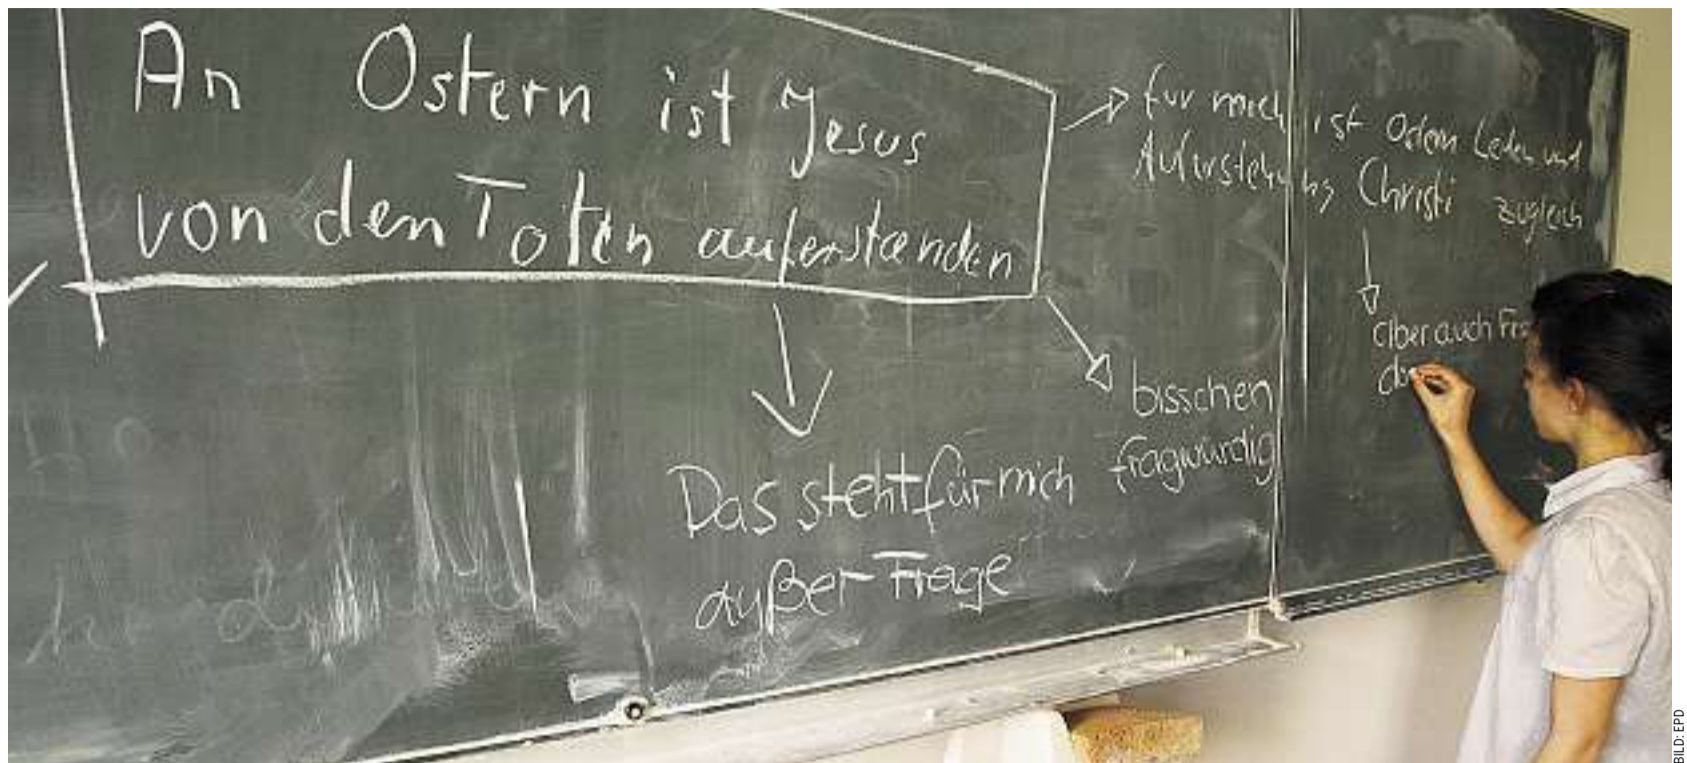 An Ostern ist Jesus
von den Toten auferstanden
für mich ist Ostern Leiden und
Auferstehung Christi zugleich
aber auch
bisschen
fragwürdig
Das steht für mich
außer Frage
BILD: EPD